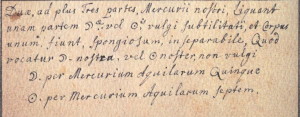 Duæ, ad plus Tres partes, Mercurii nostri, Liquant
unam partem ☽æ vel ☉ vulgi subtilitati, et Corpus
unum, fiunt, Spongiosum, inseparabile, Quod
vocatur ☽. nostra. vel ☉ noster, non vulgi
☽. per Mercurium Aquilarum Quinque
☉. per Mercurium Aquilarum septem.